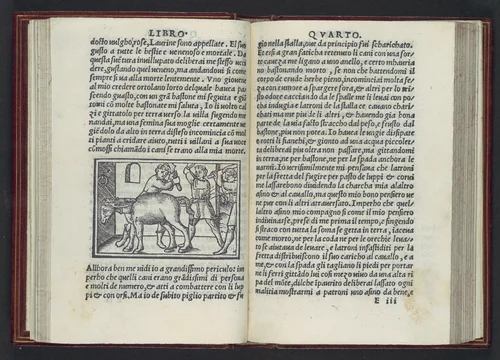 LIBRO
docto uulgho, rose, Laurine sono appellate. El suo
gusto a tutte le bestie e uenenoso e mortale. Da
questa suetura inuiluppato deliberai me stesso ucci
dere, gustando quel ueneno, ma andandoui si come
sempre si ua alla morte lentemente. Vno giouine
al mio credere ortolano l'orto del quale hauea pa
sciendo guasto, con un grā bastone mi seguita e giū
tomi cō molte bastonate mi saluta, Io li uolto calci
e gittatolo per terra uerso la uilla fugendo me
mandai, ma una femina sua moglie certamente ue
giē dolo da alto in terra disteso incomincia cō mol
ti pianti a cridare aiuto, tutti i uillani a sua uoce
cōmossi chiamādo i cani se trano alla mia morte.
Allhora ben me uidi io a grandissimo pericolo: im
perho che quelli cani erano grādissimi di persona
e molti de numero, & atti a combattere con li lu
pi & con orsi. Ma io de subito piglio partito & fu
QVARTO.
gio nella stalla, oue da principio fui scharichato.
Et essi a gran faticha retenuto li cani con una forte
me ligano a uno anello, e certo mhauria
no bastonando morto, se non che battendomi il
corpo de crude herbe pieno, incominciai molta fec
cia con rumore a spargere fora, & altri per lo
leuai con poca
indugia e latroni de la stalla ce cauano charri
chati ma me piu de li altri, & hauendo gia bona
parte de la uia fatto straccho dal peso, e frusto dal
bastone, piu non potea. Io hauea le unghie disipate
e rotti li fianchi, & gionto ad una acqua piccolet
ta deliberai piu oltra non passare, ma gittandomi
in terra, ne per bastone, ne per la spada anchora le
uarmi. Io uerisimilmente mi pensaua che latroni
per la fretta del fugire per pasto de luppi & corui
me lassarebono diuidendo la charcha mia al altro
asino & al cauallo, ma questo mio bono pensiero ue
ne pur con li altri attrauersato. Imperho che quel
laltro asino mio compagno si come il mio pensiero
indiuinasse, prese di me prima il tempo, e fingendo
si stracco con tutta la soma se getta in terra, iacea
come morto, ne per la coda ne per le orechie leuato
se aiutaua de leuare, e latroni infastiditi per la
fretta distribuiscono il suo caricho al cauallo, e a
me & con la spada gli tagliano li piedi per portar
ne li ferri gittādo lui cosi mezo uiuo da una alta ri
pa del mōte, dil che spaurito deliberai lassato ogni
malitia mostrarmi a patroni uno asino da bene, e
E iii